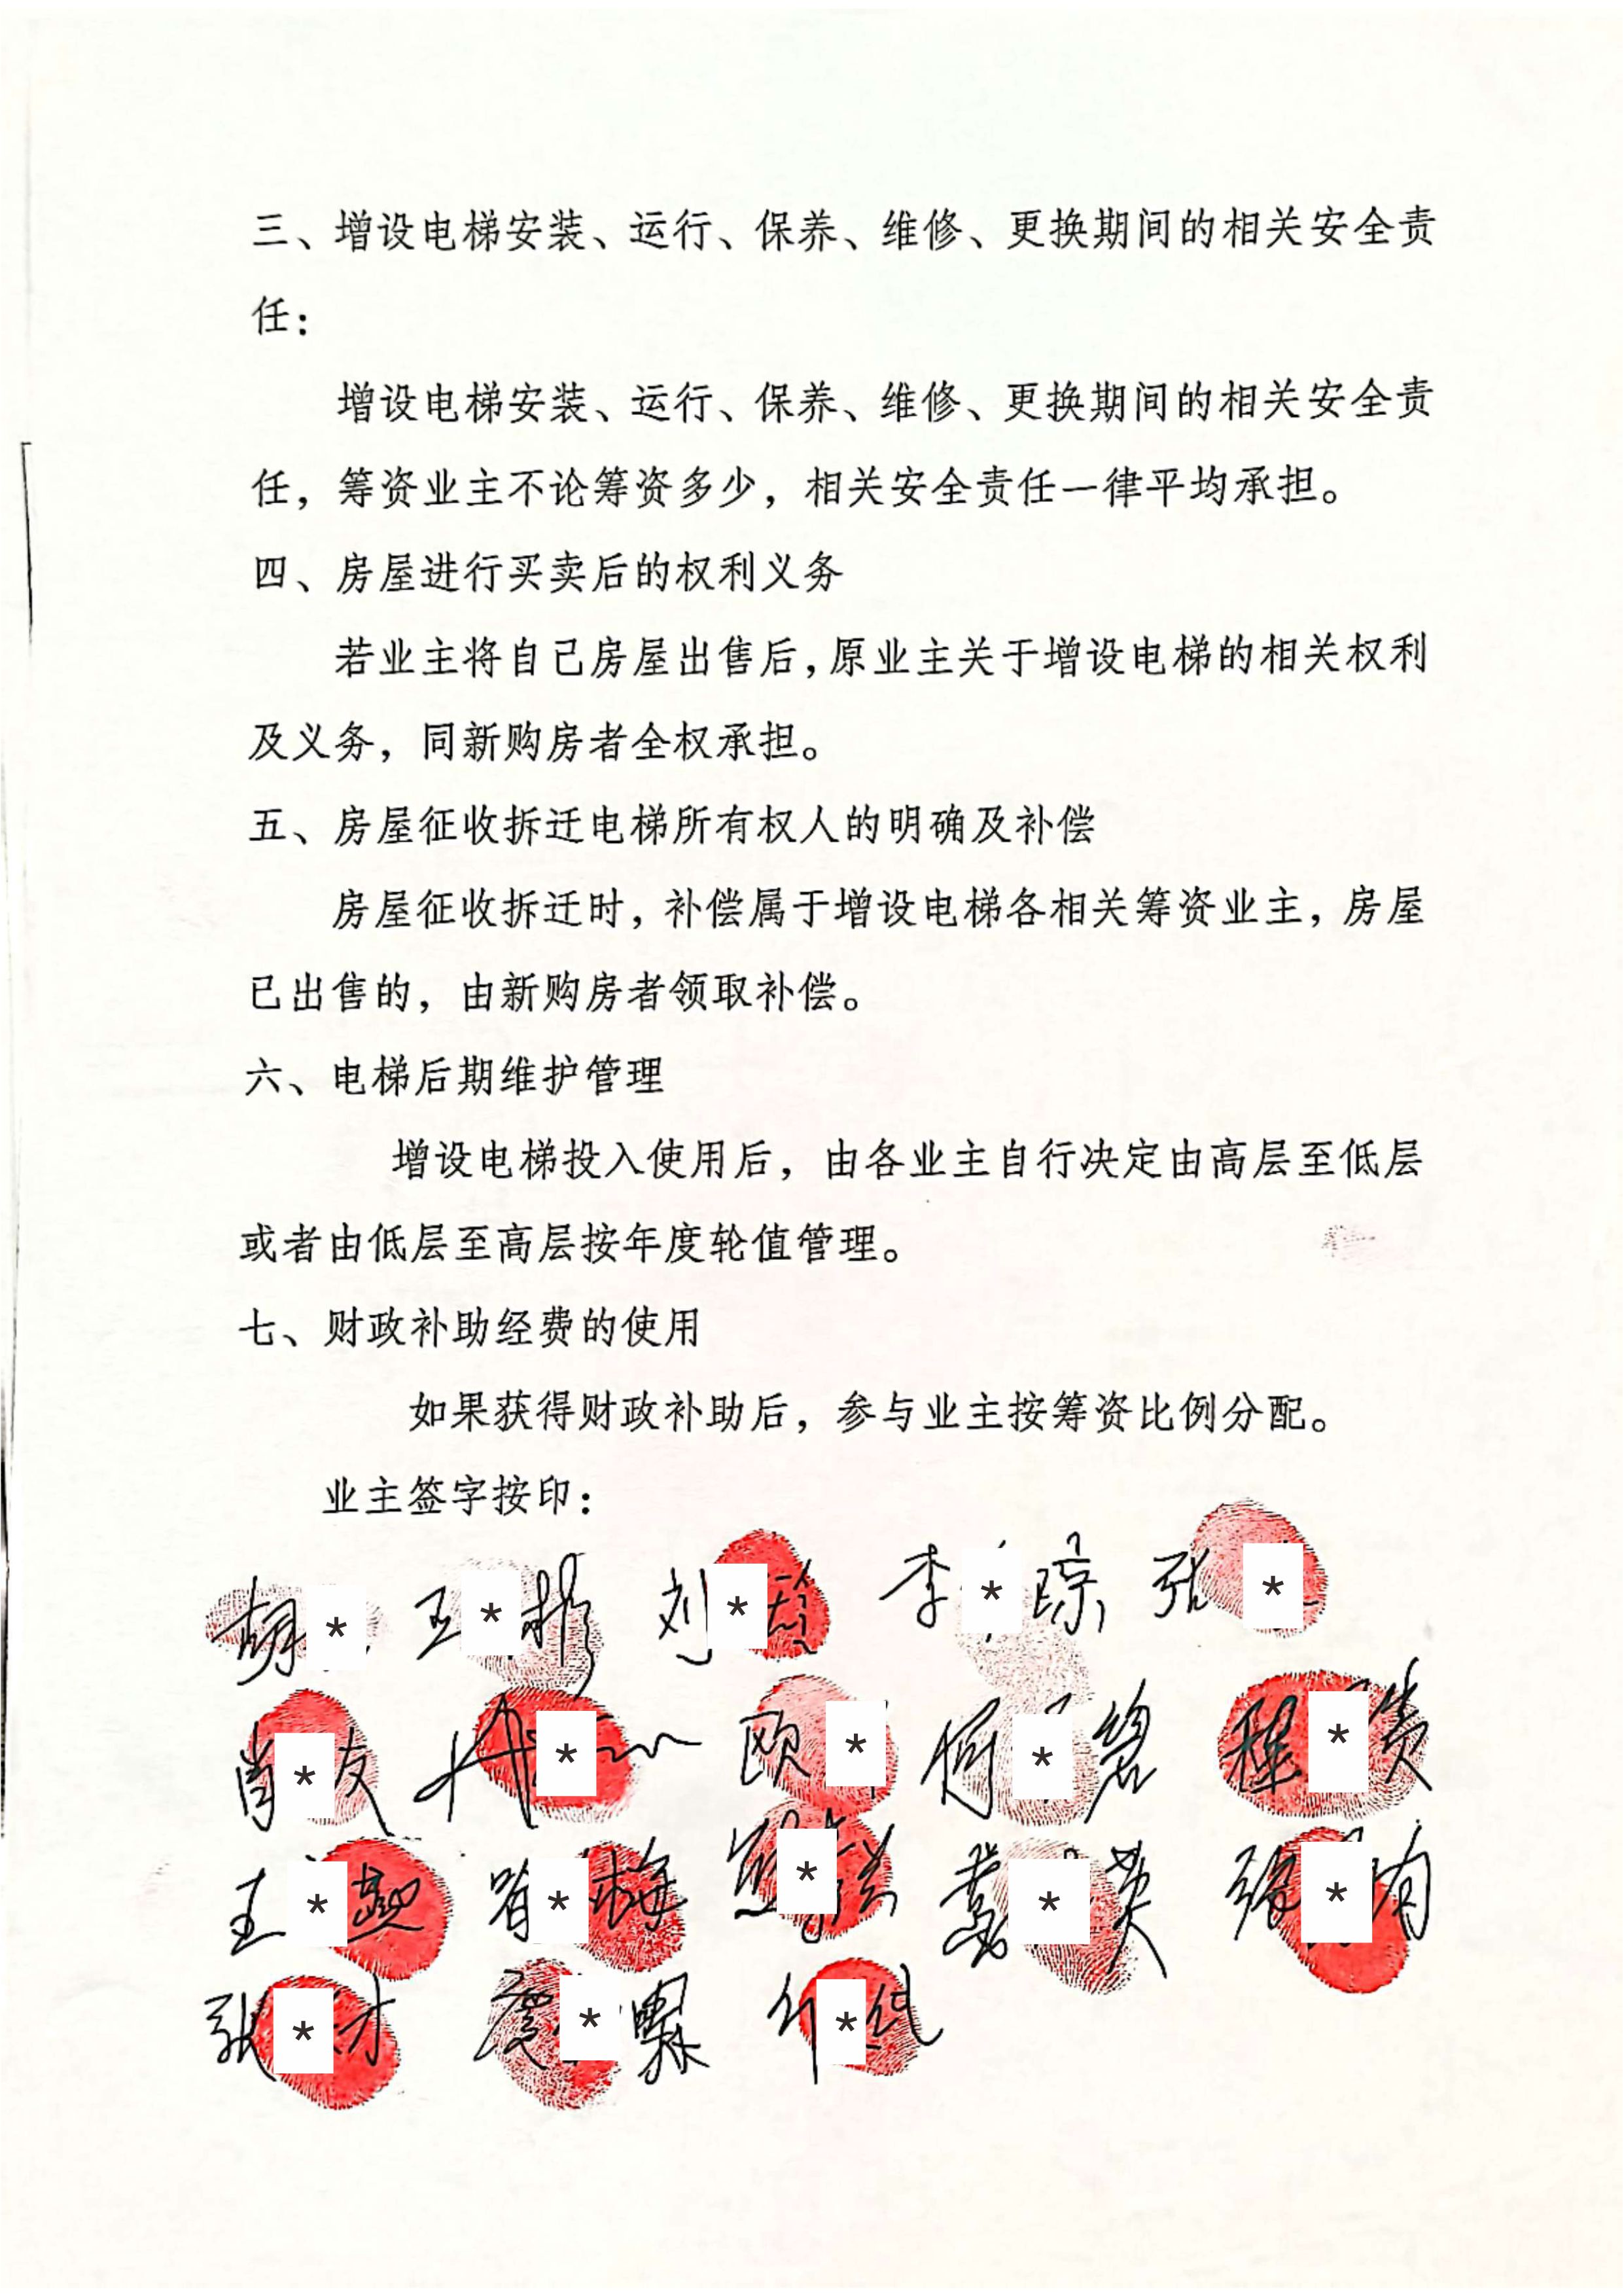 三、增设电梯安装、运行、保养、维修、更换期间的相关安全责
任：
增设电梯安装、运行、保养、维修、更换期间的相关安全责
任，筹资业主不论筹资多少，相关安全责任一律平均承担。
四、房屋进行买卖后的权利义务
若业主将自己房屋出售后，原业主关于增设电梯的相关权利
及义务，同新购房者全权承担。
五、房屋征收拆迁电梯所有权人的明确及补偿
房屋征收拆迁时，补偿属于增设电梯各相关筹资业主，房屋
已出售的，由新购房者领取补偿。
六、电梯后期维护管理
增设电梯投入使用后，由各业主自行决定由高层至低层
或者由低层至高层按年度轮值管理。
七、财政补助经费的使用
如果获得财政补助后，参与业主按筹资比例分配。
业主签字按印：
胡* 王*彬 刘* 李*琼 张*
肖*友 * 欧* 何* 程*贵
王* * *梅 * *英 *
张*才 * *